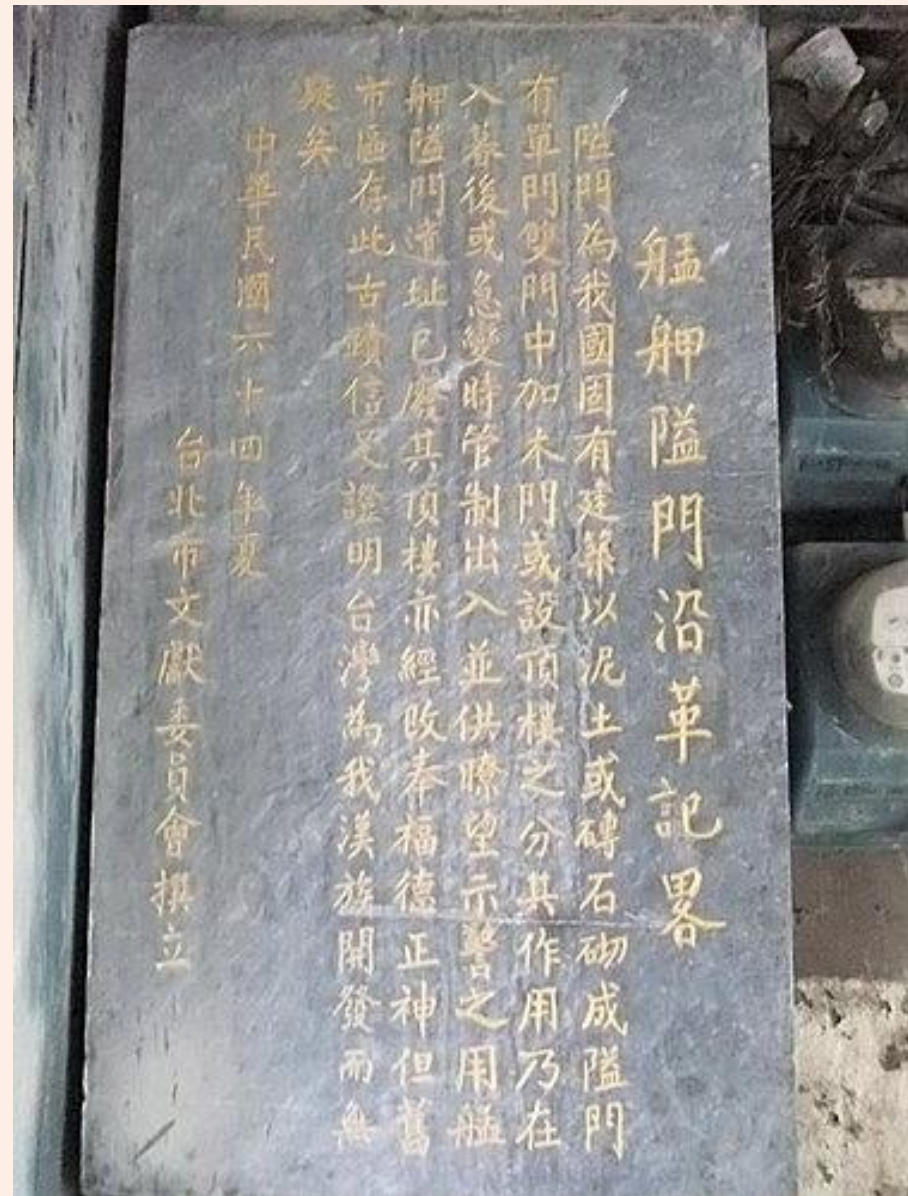 艋舺隘門沿革記畧
隘門為我國固有建築以泥土或磚石砌成隘門
有單門雙門中加木門或設頂樓之分其作用乃在
入暮後或急變時管制出入並供瞭望示警之用艋
舺隘門遺址已廢其頂樓亦經改奉福德正神但舊
市區存此古蹟信足證明台灣為我漢族開發而無
疑矣
中華民國六十四年夏
台北市文獻委員會撰立